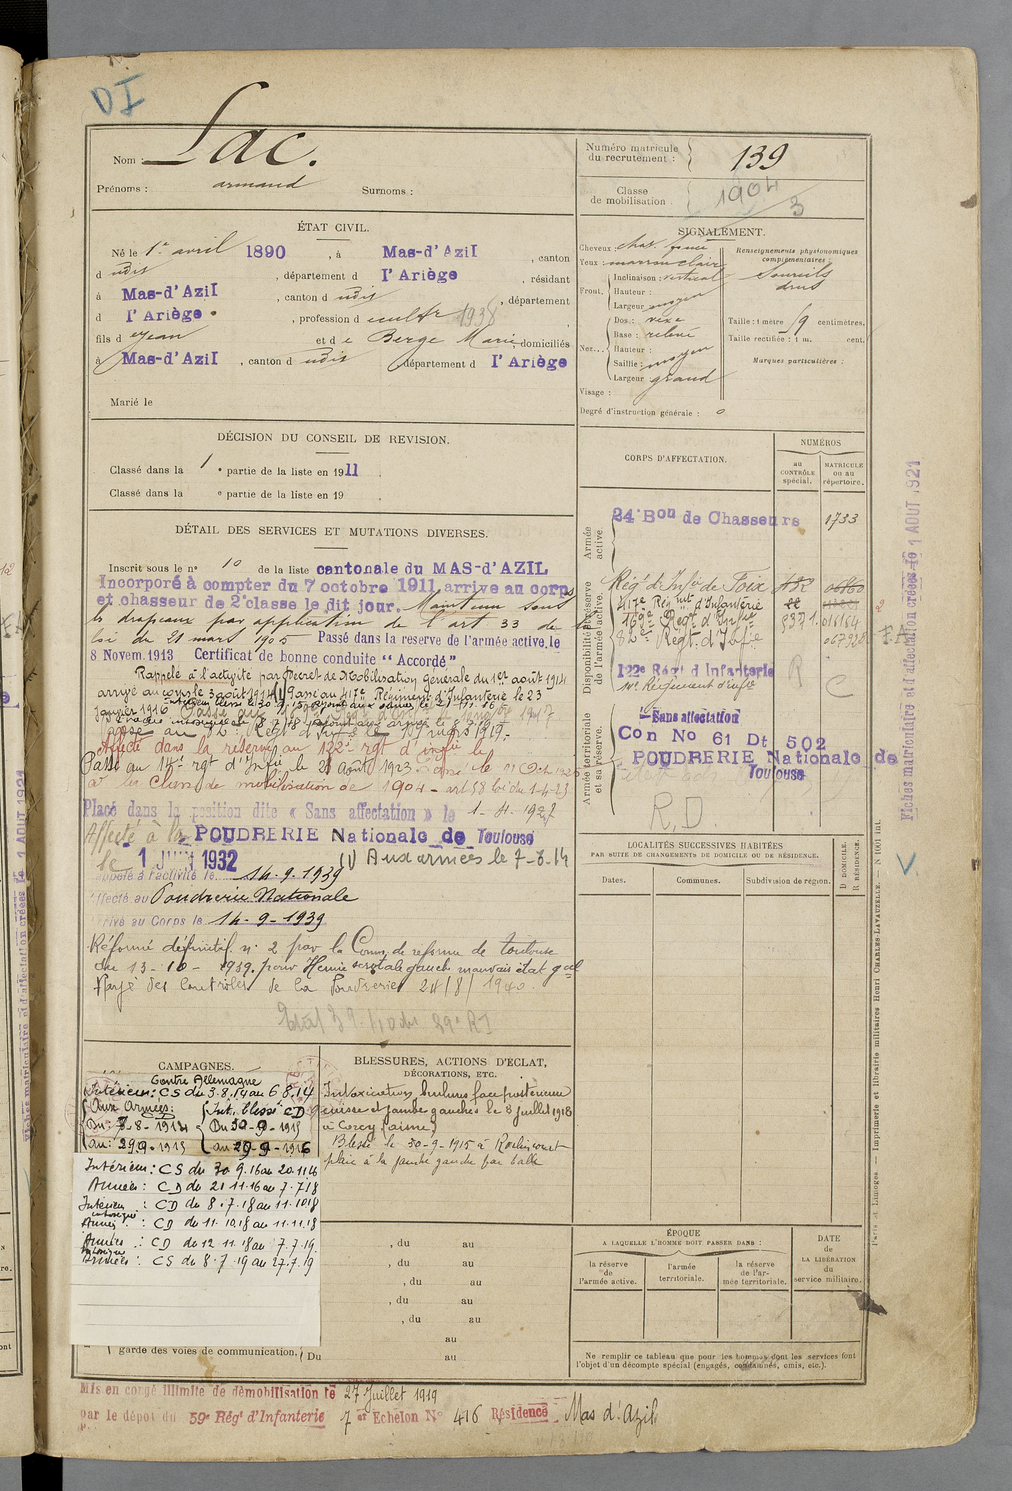 DI
Nom : Lac.
Prénoms : armand Surnoms :
Numéro matricule
du recrutement : 139
Classe
de mobilisation 1904
3
ÉTAT CIVIL.
Né le 1er avril 1890, à Mas-d'Azil, canton
d udit, département d l'Ariège, résidant
à Mas-d'Azil, canton d udit, département
d l'Ariège, profession d cultr 1938
fils d e Jean et d e Berge Marie domiciliés
à Mas-d'Azil, canton d udit département d l'Ariège
Marié le
SIGNALEMENT.
Cheveux : chat. foncé
Yeux : marron clair
Front. Inclinaison : vertical
Hauteur :
Largeur moyen
Nez... Dos : vexe
Base : relevé
Hauteur :
Saillie : moyen
Largeur grand
Visage :
Renseignements physionomiques
complémentaires :
Sourcils
drus
Taille : 1 mètre 59 centimètres.
Taille rectifiée : 1 m. cent.
Marques particulières :
Degré d'instruction générale : 0
DÉCISION DU CONSEIL DE REVISION.
Classé dans la 1e partie de la liste en 1911
Classé dans la e partie de la liste en 19
DÉTAIL DES SERVICES ET MUTATIONS DIVERSES.
Inscrit sous le n° 10 de la liste cantonale du MAS-d'AZIL
Incorporé à compter du 7 octobre 1911, arrive au corps
et chasseur de 2e classe le dit jour. Maintenu sous
les drapeaux par application de l'art 33 de la
loi du 21 mars 1905 Passé dans la reserve de l'armée active, le
8 Novem. 1913 Certificat de bonne conduite "Accordé"
Rappelé à l'activité par Décret de Mobilisation Générale du 1er août 1914
arrivé au corps le 3 août 1914 (1) Passé au 417e Régiment d'Infanterie le 23
janvier 1916
passé au 82e Regt d'Infie le 17 mars 1919.
Affecté dans la réserve au 122e rgt d'infie le
Passé au 14e rgt d'Infie le 21 Août 1923
à la Classe de mobilisation de 1904 - art 58 loi du 1-4-23
Placé dans la position dite « Sans affectation » le 1-4-1927
Affecté à la POUDRERIE Nationale de Toulouse
le 1 JUIN 1932 (1) Aux armées le 7-8-14
Rappelé à l'activité le 14-9-1939
Affecté au Poudrerie Nationale
Arrivé au Corps le 14-9-1939
Réformé définitif n° 2 par la Comon de réforme de toulouse
du 13-10-1939. pour Hernie scrotale gauche mauvais état gal
Rayé des Contrôles de la Poudrerie 24/8/1940
CORPS D'AFFECTATION.
NUMÉROS
au
CONTRÔLE
spécial.
MATRICULE
ou au
répertoire.
Armée
active
24e Bon de Chasseurs 1733
Disponibilité et réserve
de l'armée active.
Régt d'Infie de Foix
417e Régint d'Infanterie
169e Regt d'Infie 5371 016164
82e Regt d'Infie
122e Régt d'Infanterie
14e Régiment d'infie
R C
Armée territoriale
et sa réserve.
Sans affectation
Con No 61 Dt 502
POUDRERIE Nationale de
Toulouse
R.D
LOCALITÉS SUCCESSIVES HABITÉES
PAR SUITE DE CHANGEMENTS DE DOMICILE OU DE RÉSIDENCE.
Dates. Communes. Subdivision de région.
D. DOMICILE.
R. RÉSIDENCE.
CAMPAGNES.
Contre Allemagne
Intérieur : CS du 3.8.14 au 6 8.14
Aux Armées :
Du : 7-8-1914
au : 29-9-1915
Int. blessé CD
Du 30-9-1915
au 29-9-1916
Intérieur : CS du 30 9.16 au 20.11.16
Armées : CD du 21 11.16 au 7.7.18
Intérieur intoxiqué : CD du 8.7.18 au 11.10.18
Armées : CD du 11.10.18 au 11.11.18
Armées : CD du 12.11.18 au 7.7.19.
Armées : CS du 8.7.19 au 27.7.19
garde des voies de communication. Du au
BLESSURES, ACTIONS D'ÉCLAT,
DÉCORATIONS, ETC.
Intoxication, brulure face postérieure
cuisse et jambe gauches le 8 juillet 1918
à Corcy (aisne)
Blessé le 30-9-1915 à Roclincourt
plaie à la jambe gauche par balle
, du au
, du au
, du au
, du au
, du au
au
au
ÉPOQUE
A LAQUELLE L'HOMME DOIT PASSER DANS :
la réserve
de
l'armée active.
l'armée
territoriale.
la réserve
de l'ar-
mée territoriale.
DATE
de
LA LIBÉRATION
du
service militaire.
Ne remplir ce tableau que pour les hommes dont les services font
l'objet d'un décompte spécial (engagés, condamnés, omis, etc.).
Mis en congé illimité de démobilisation le 27 Juillet 1919
par le dépôt du 59e Régt d'Infanterie 7e Echelon N° 416 Résidence Mas d'Azil
Fiches matriculaire et d'affectation créées le 1 AOUT 1921
Paris et Limoges. — Imprimerie et librairie militaires Henri CHARLES-LAVAUZELLE. — N° 1001 int.